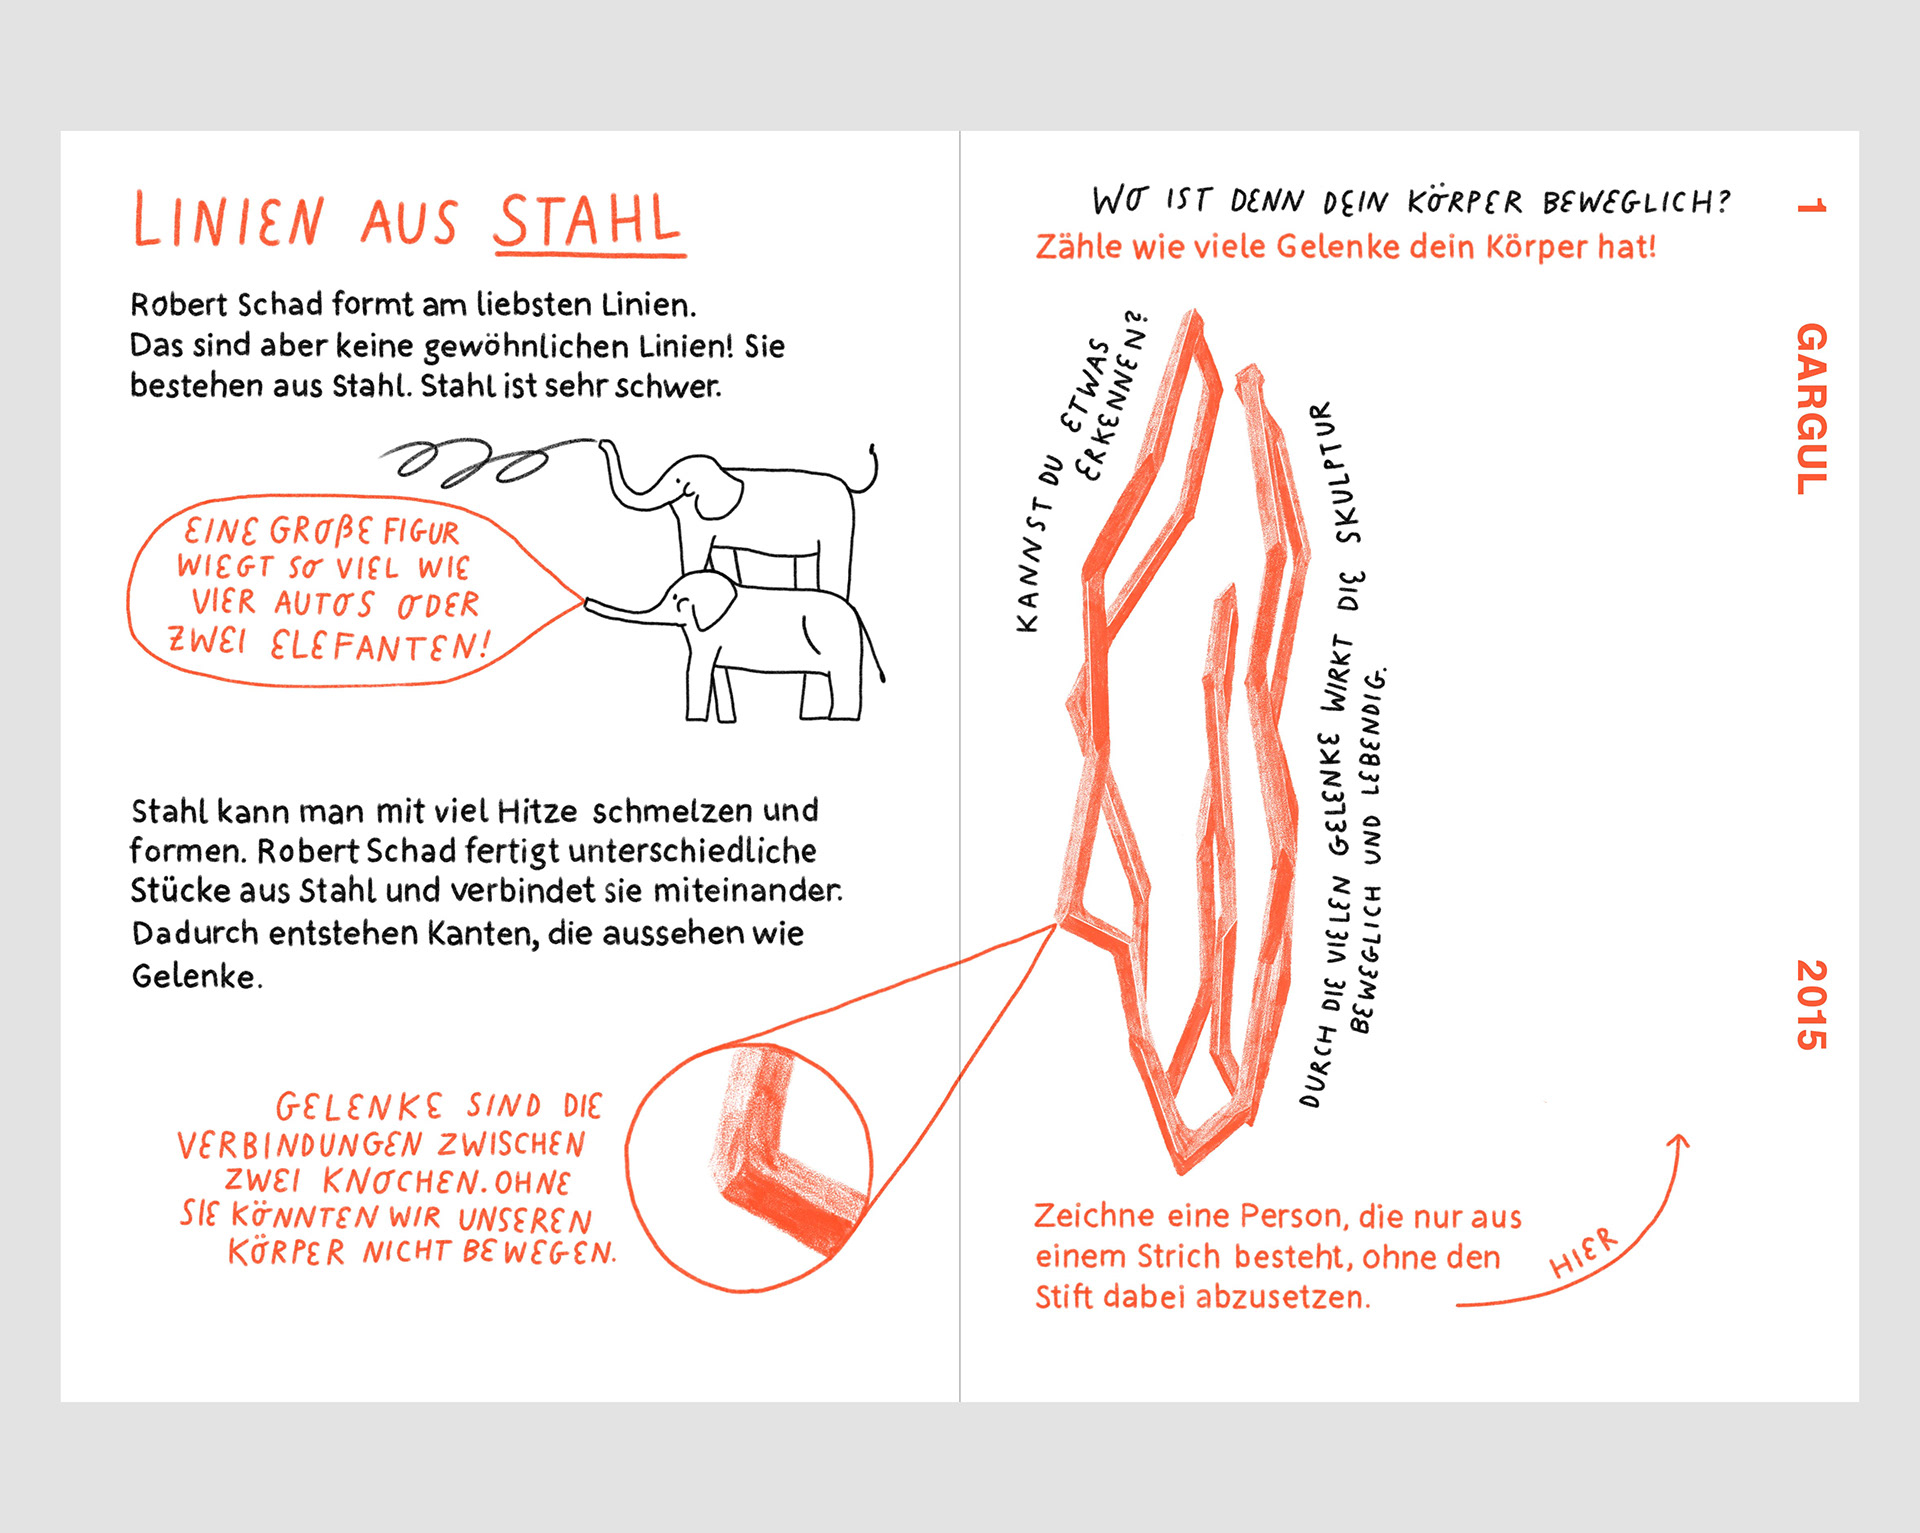 LINIEN AUS STAHL
Robert Schad formt am liebsten Linien.
Das sind aber keine gewöhnlichen Linien! Sie
bestehen aus Stahl. Stahl ist sehr schwer.
EINE GROßE FIGUR
WIEGT SO VIEL WIE
VIER AUTOS ODER
ZWEI ELEFANTEN!
Stahl kann man mit viel Hitze schmelzen und
formen. Robert Schad fertigt unterschiedliche
Stücke aus Stahl und verbindet sie miteinander.
Dadurch entstehen Kanten, die aussehen wie
Gelenke.
GELENKE SIND DIE
VERBINDUNGEN ZWISCHEN
ZWEI KNOCHEN. OHNE
SIE KÖNNTEN WIR UNSEREN
KÖRPER NICHT BEWEGEN.
WO IST DENN DEIN KÖRPER BEWEGLICH?
Zähle wie viele Gelenke dein Körper hat!
KANNST DU ETWAS
ERKENNEN?
DURCH DIE VIELEN GELENKE WIRKT DIE SKULPTUR
BEWEGLICH UND LEBENDIG.
Zeichne eine Person, die nur aus
einem Strich besteht, ohne den
Stift dabei abzusetzen.
HIER
1 GARGUL 2015